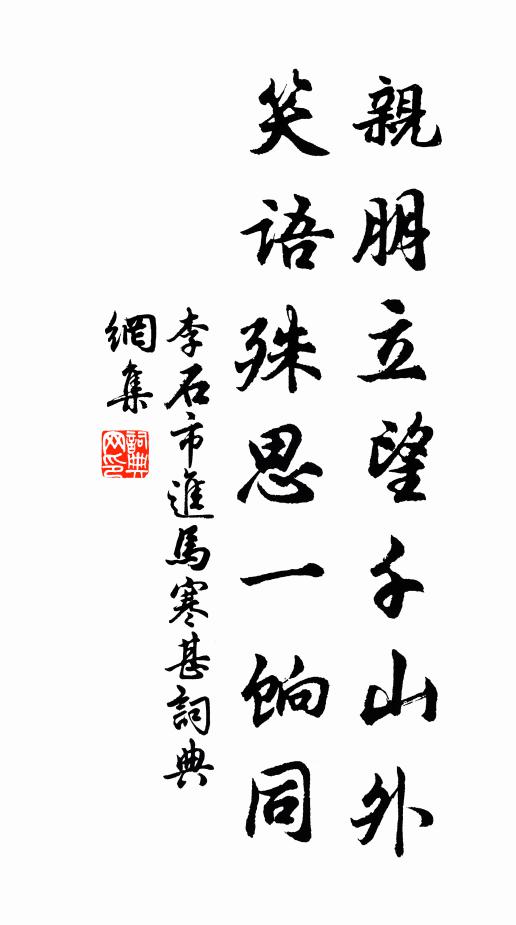 親朋立望千山外
笑語殊思一餉同
李石市進馬寒甚詞典
網集
詞典
网印